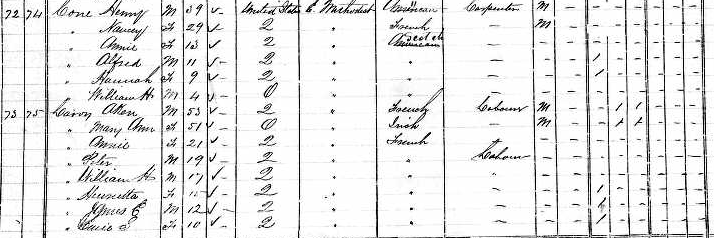 72 74 Cone Henry M 39 United States E. Methodist American Carpenter M
" Nancy F 29 2 " French — M
" Annie F 13 2 " Scotch American —
" Alfred M 11 2 " " — 1
" Hannah F 9 2 " " — 1
" William H M 4 0 " " —
73 75 Allen M 53 2 " French Labour M 1 1
" Mary Ann F 51 0 " Irish — M
" Annie F 21 2 " French —
" Peter M 19 2 " " Labour —
" William H M 17 2 " " " —
" Henrietta F 2 " " — 1
" James E M 12 2 " " —
" F 10 2 " " — 1